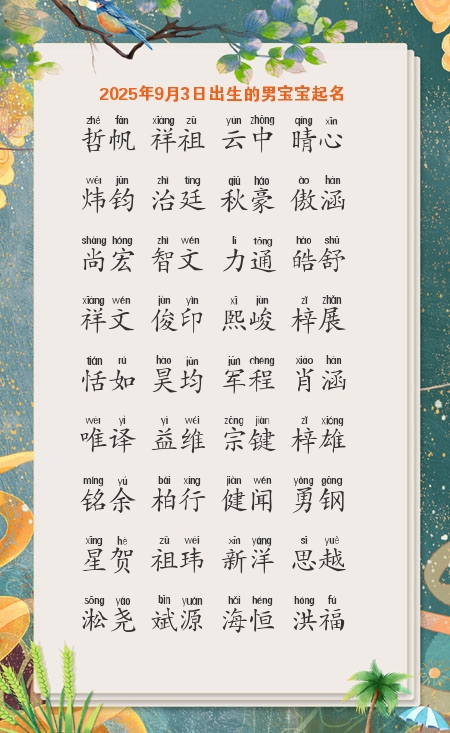 2025年9月3日出生的男宝宝起名
zhé fān xiáng zǔ yún zhōng qíng xīn
哲帆 祥祖 云中 晴心
wěi jūn zhì tíng qiū háo ào hán
炜钧 治廷 秋豪 傲涵
shàng hóng zhì wén lì tōng hào shū
尚宏 智文 力通 皓舒
xiáng wén jùn yìn xī jùn zǐ zhǎn
祥文 俊印 熙峻 梓展
tián rú hào jūn jūn chéng xiāo hán
恬如 昊均 军程 肖涵
wéi yì yì wéi zōng jiàn zǐ xióng
唯译 益维 宗键 梓雄
míng yú bǎi xíng jiàn wén yǒng gāng
铭余 柏行 健闻 勇钢
xīng hè zǔ wěi xīn yáng sī yuè
星贺 祖玮 新洋 思越
sōng yáo bīn yuán hǎi héng hóng fú
淞尧 斌源 海恒 洪福